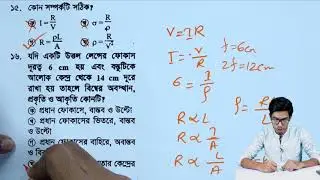 ১৫. কোন সম্পর্কটি সঠিক?
I = R/V
σ = R/ρ
R = ρL/A
ρ = R/V²
১৬. যদি একটি উত্তল লেন্সের ফোকাস
দূরত্ব 6 cm হয় এবং বস্তুটিকে
আলোক কেন্দ্র থেকে 14 cm দূরে
রাখা হয় তাহলে বিম্বের অবস্থান,
প্রকৃতি ও আকৃতি কোনটি?
প্রধান ফোকাসে, বাস্তব ও উল্টো
প্রধান ফোকাসের ভিতরে, বাস্তব
ও উল্টো
প্রধান ফোকাসের বাহিরে, অবাস্তব
কেন্দ্রের
V = IR
I = V/R
f = 6cm
2f = 12cm
R ∝ L
R ∝ 1/A
R ∝ L/A